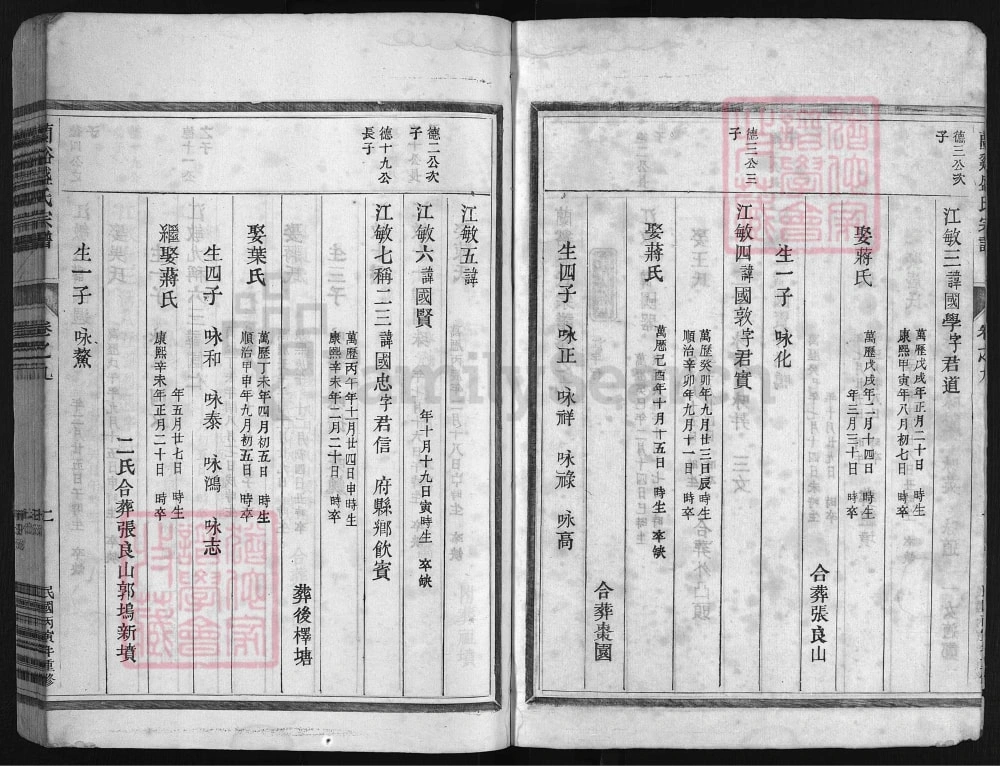 德三公次
子
江敏三諱國學字君道
萬歷戊戌年正月二十日 時生
康熙甲寅年八月初七日 時卒
娶蔣氏
萬歷戊戌年二月十四日 時生
年三月三十日 時卒
合葬張良山
生一子 咏化
德三公三
子
江敏四諱國敦字君實
萬歷癸卯年九月廿三日辰時生
順治辛卯年九月十一日 時卒
娶蔣氏
萬歷己酉年十月十五日 時生 卒缺
合葬棗園
生四子 咏正 咏祥 咏祿 咏高
江敏五諱
德二公次
子
江敏六諱國賢
年十月十九日寅時生 卒缺
德十九公
長子
江敏七稱二三諱國忠字君信 府縣鄉飲賓
萬歷丙午年十一月廿四日申時生
康熙辛未年二月二十日 時卒
葬後檡塘
娶葉氏
萬歷丁未年四月初五日 時生
順治甲申年九月初五日 時卒
生四子 咏和 咏泰 咏鴻 咏志
繼娶蔣氏
年五月廿七日 時生
康熙辛未年正月二十日 時卒
二氏合葬張良山郭塢新墳
生一子 咏鰲
蘭谿盛氏宗譜
卷之九
民國丙寅年重修